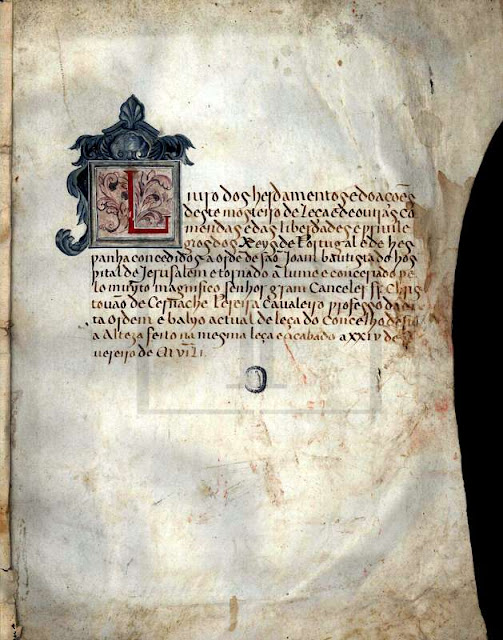 Liuro dos herdamentos e doações
deste mosteiro de leça e de outras co
mendas e das liberdades e priuile
gios dos Reys de Portugal e de hes
panha concedidos à ordē de são Joam bautista do hos
pital de Jerusalem e tornado a lume e concertado pe
lo muyto magnifico senhor gram Canceler ff. Chris
touão de Cernache Pereira Caualeiro professo da di
ta ordem e balyo actual de leça do Concelho de sū
a Alteza feito na mesma leça e acabado a XXIV de
uereiro de